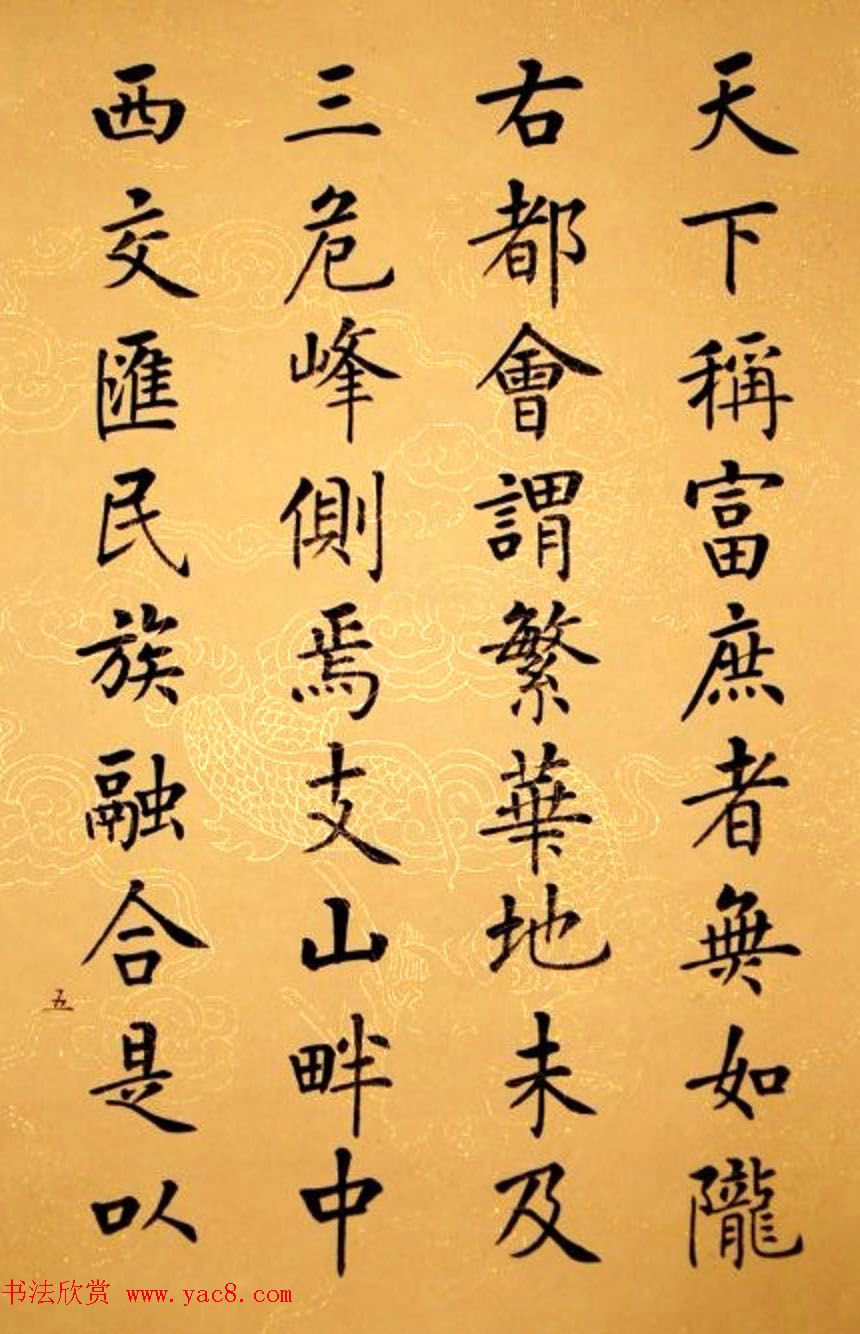 天下稱富庶者無如隴
右都會謂繁華地未及
三危峰側焉支山畔中
西交匯民族融合是以
五
书法欣赏 www.yac8.com